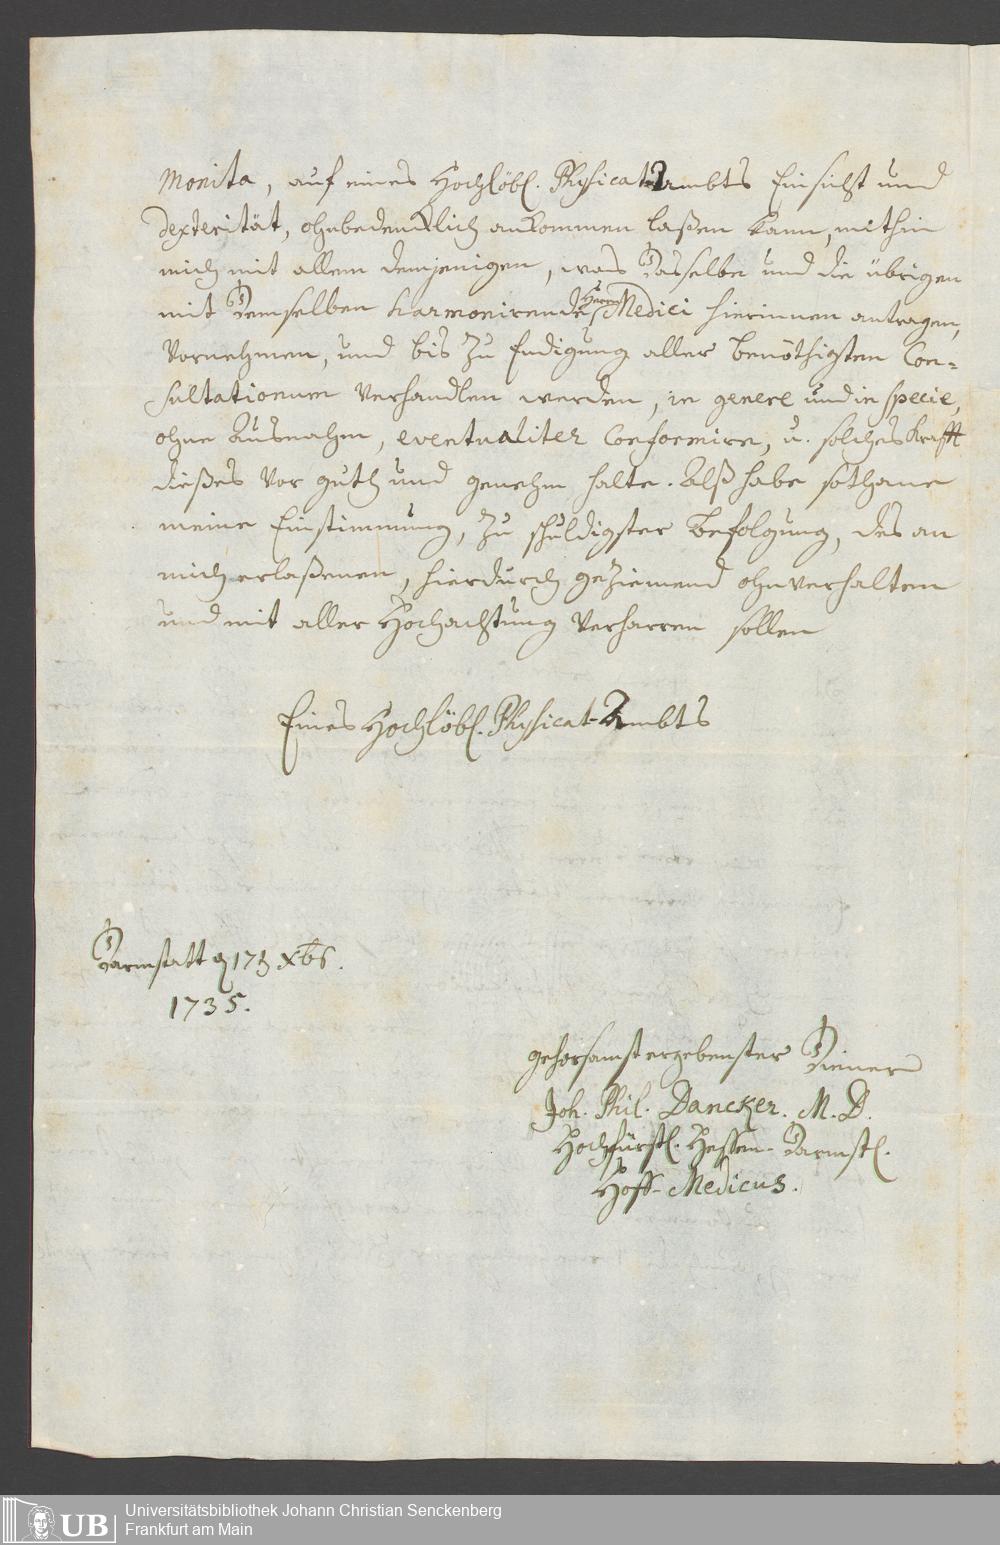 Monita, auf eines Hochlöbl. Physicat-Ambts Einsicht und
Dexterität, ohnbedencklich ankommen laßen kann, mithin
mich mit allem demjenigen, was Dasselbe und die übrigen
mit Demselben harmonirende Herrn Medici hierinnen antragen,
Vornehmen, und bis zu Endigung aller benöthigsten Con-
sultationum Verhandlen werden, in genere und in specie,
ohne Ausnahm, eventualiter Conformire, u. solches Krafft
dießes Vor guth und genehm halte. Alß habe sothane
meine Einstimmung, zu schuldigster Befolgung, des an
mich erlaßenen, hierdurch geziemend ohnverhalten
und mit aller Hochachtung Verharren sollen
Eines Hochlöbl. Physicat-Ambts
Darmstatt d 17t Xbs.
1735.
gehorsamst ergebenster Diener
Joh. Phil. Dancker. M. D.
Hochfürstl. Hessen-Darmstl.
Hoff-Medicus.
UB
Universitätsbibliothek Johann Christian Senckenberg
Frankfurt am Main